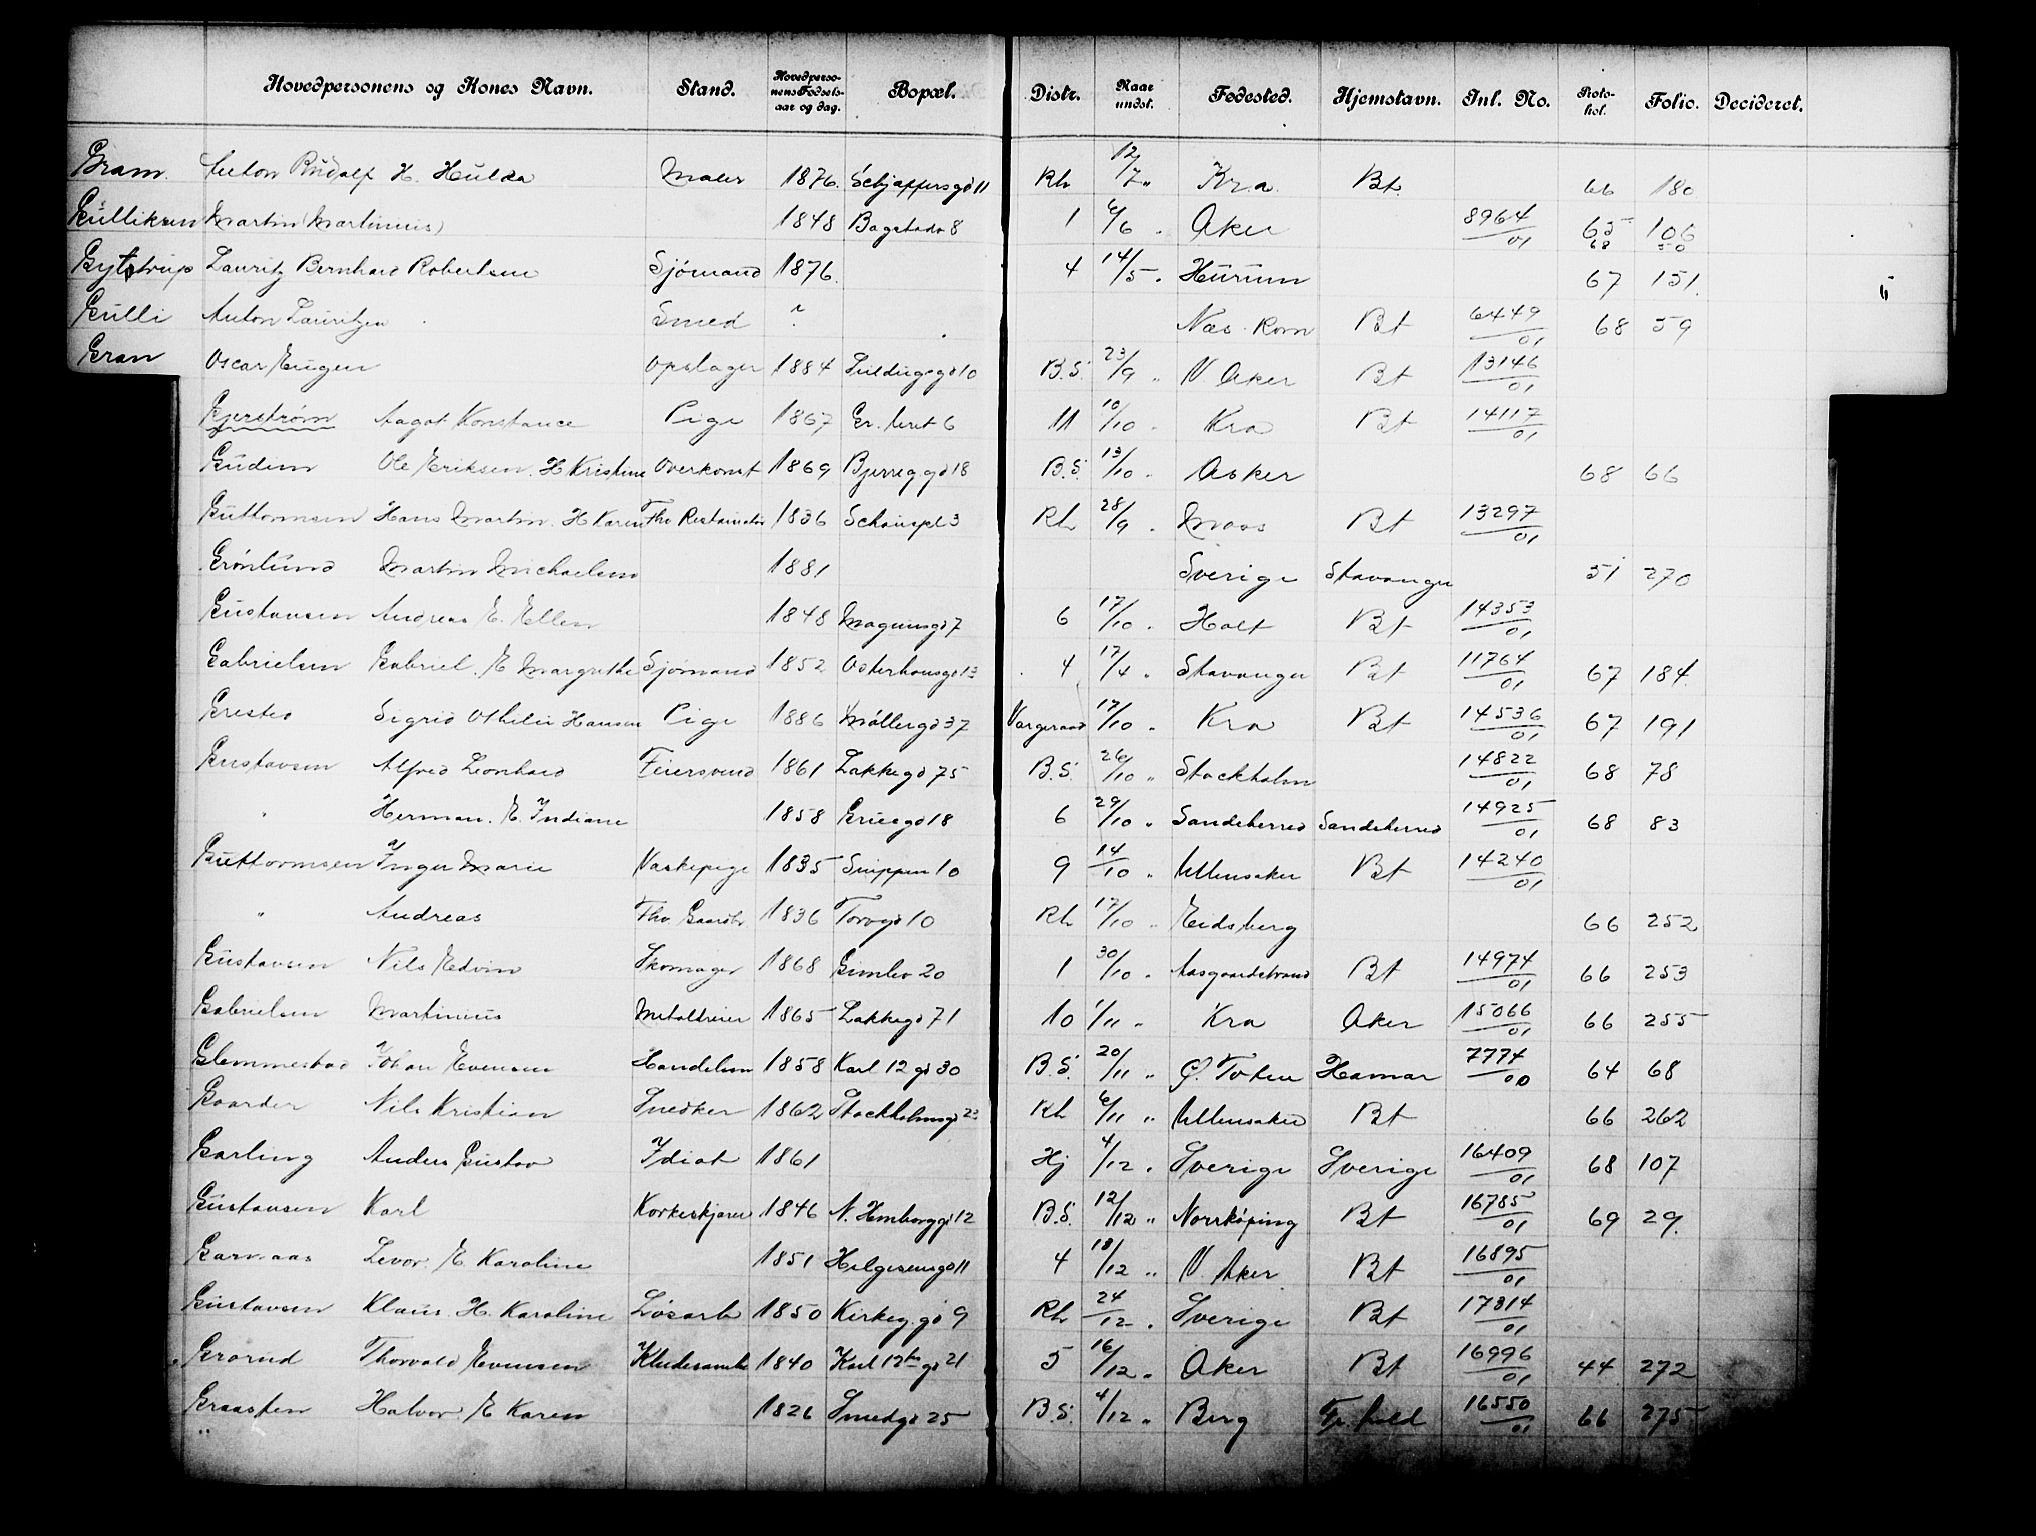 Hovedpersonens og Kones Navn. Stand. Hovedpersonens Fødselsaar og dag. Bopæl. Distr. Naar undst. Fødested. Hjemstavn. Inl. No. Protokol. Folio. Decideret.
Gram. Anton Rudolf H. Hulda Maler 1876. Schjøffersgd 11 Rh 12/7 " Kra. Bt. 66 180
Gulliksen Martin (Martinius) 1848 Bogstadv 8 1 6/6 " Aker 8964/01 65 106
68 50
Gytstrup Lauritz Bernhard Robertsen Sjømand 1876. 4 14/5 " Hurum 67 151.
Gulli Anton Lauritzen Smed ? Næs. Rom Bt 6449/01 68 59
Gran Oscar Eugen Opslager 1884 10 B.S. 23/9 " V. Aker Bt 13146/01
Gjerstrøm Aagot Konstance Pige 1867 Gr. leret 6 11 10/10 " Kra Bt 14117/01
Gudim Ole Eriksen. H Kristine Overkonst 1869 Bjerreggd 18 B.S. 13/10 " Asker 68 66
Guttormsen Hans Martin. H Karen Fhv Restauratør 1836 Schouspl 3 Rh 28/9 " Moss Bt 13297/01
Grønlund Martin Michaelsen 1881 Sverige Stavanger 51 270
Gustavsen Andreas E. Ellen 1848 Magnusgd 7 6 17/10 " Holt Bt 14353/01
Gabrielsen Gabriel. E Margrethe Sjømand 1852 Osterhausgd 13 4 17/4 " Stavanger Bt 11764/01 67 184.
Grested Sigrid Othilie Hansen Pige 1886 Møllergd 37 Vargeraad 17/10 " Kra Bt 14536/01 67 191
Gustavsen Alfred Leonhard Feiersvend 1861 Lakkegd 75 B.S. 26/10 " Stockholm 14822/01 68 78
" Herman. E. Indiane 1858 Gruegd 18 6 29/10 " Sandeherred Sandeherred 14925/01 68 83
Guttormsen Inger Marie Vaskepige 1835 Snippen 10 9 14/10 " Ullensaker Bt 14240/01
" Andreas Fhv Gaardbr. 1836 Torvgd 10 Rh 17/10 " Eidsberg 66 252
Gustavsen Nils Edvin Skomager 1868 Gimlev 20 1 30/10 " Aasgaardstrand Bt 14974/01 66 253
Gabrielsen Martinius Metaldreier 1865 Lakkegd 71 10 1/11 " Kra Aker 15066/01 66 255
Glemmestad Johan Evensen Handelsm 1858 Karl 12 gd 30 B.S. 20/11 " Ø. Toten Hamar 7774/00 64 68
Gaarder Nils Kristian Snedker 1862 Stockholmsgd 23 Rh 6/11 " Ullensaker Bt 66 262
Garling Anders Gustav Idiot 1861 Hj 4/12 " Sverige Sverige 16409/01 68 107
Gustavsen Karl Korkeskjærer 1846 N. Hmborggd 12 B.S. 12/12 " Norrköping Bt 16785/01 69 29.
Garnaas Levor. E. Karoline 1851 Helgesensgd 11 4 18/12 " V. Aker Bt 16895/01
Gustavsen Klaus. H. Karoline Løsarb 1850 Kirkeg.gd 9 Rh 24/12 " Sverige Bt 17314/01
Grorud Thorvald Evensen Kludesamler 1840 Karl 12te gd 21 5 16/12 " Aker Bt 16996/01 44 272
Graasten Halvor. E Karen 1826 Smedgd 25 B.S. 4/12 " Berg Fr. hald 16550/01 66 275
"